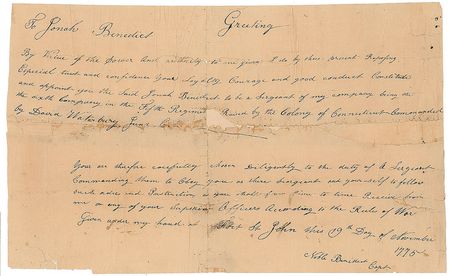 To Jonah Benedict Greeting
By Virtue of the Power and authority to me given I do by these present Reposing
Especial trust and confidence Your Loyalty, Courage and good conduct Constitute
and appoint you the Said Jonah Benedict to be a Sergeant of my company being in
the sixth Company in the Fifth Regiment Raised by the Colony of Connecticut Commanded
by David Waterbury
You are therefore carefully Diligently to the duty of A Sergeant
Commanding them to Obey you as there Sergeant and yourself to follow
Such and Instruction as you shall from time to time Receive from
me or any of your Superior Officers According to the Rule of War
Given under my hand at Fort St John this 19th Day of November
1775
Noble Benedict
Capt